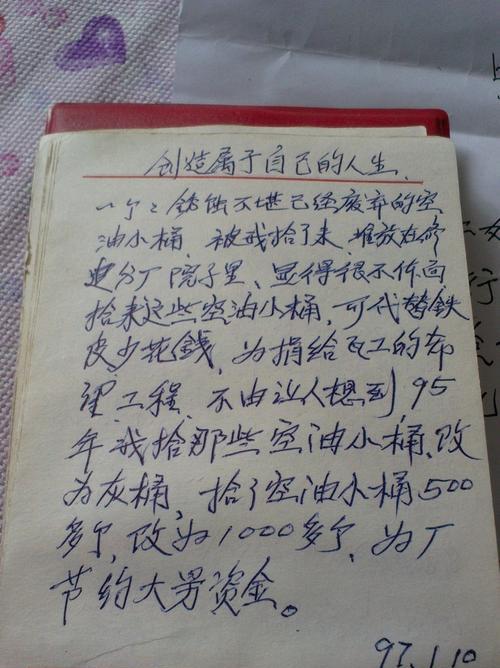 创造属于自己的人生、
一个々锈蚀不堪已经废弃的空
油小桶，被我拾了来，堆放在修
造分厂院子里、显得很不作向
拾来这些空油小桶，可代替铁
皮少花錢，为捐给瓦工的
理工程，不由让人想到，95
年我拾那些空油小桶、改
为灰桶，拾了空油小桶500
多个，改为1000多个，为厂
节约大男资金。
97.1.10